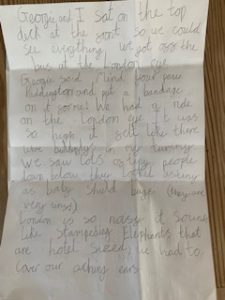 Georgie and I sat on the top
deck at the front so we could
see everything. we got off the
bus at the London eye
Georgie said Mind your paw
Paddington and put a bandage
on it for me! We had a ride
on the London eye It was
so high it felt like there
were butterflys in my tummy
We saw lots of tiny people
down below they looked as tiny
as baby shield bugs (they are
very tiny!)
London is so noisy it sounds
like stampeding Elephants that
are hotel sized, we had to
cover our aching ears